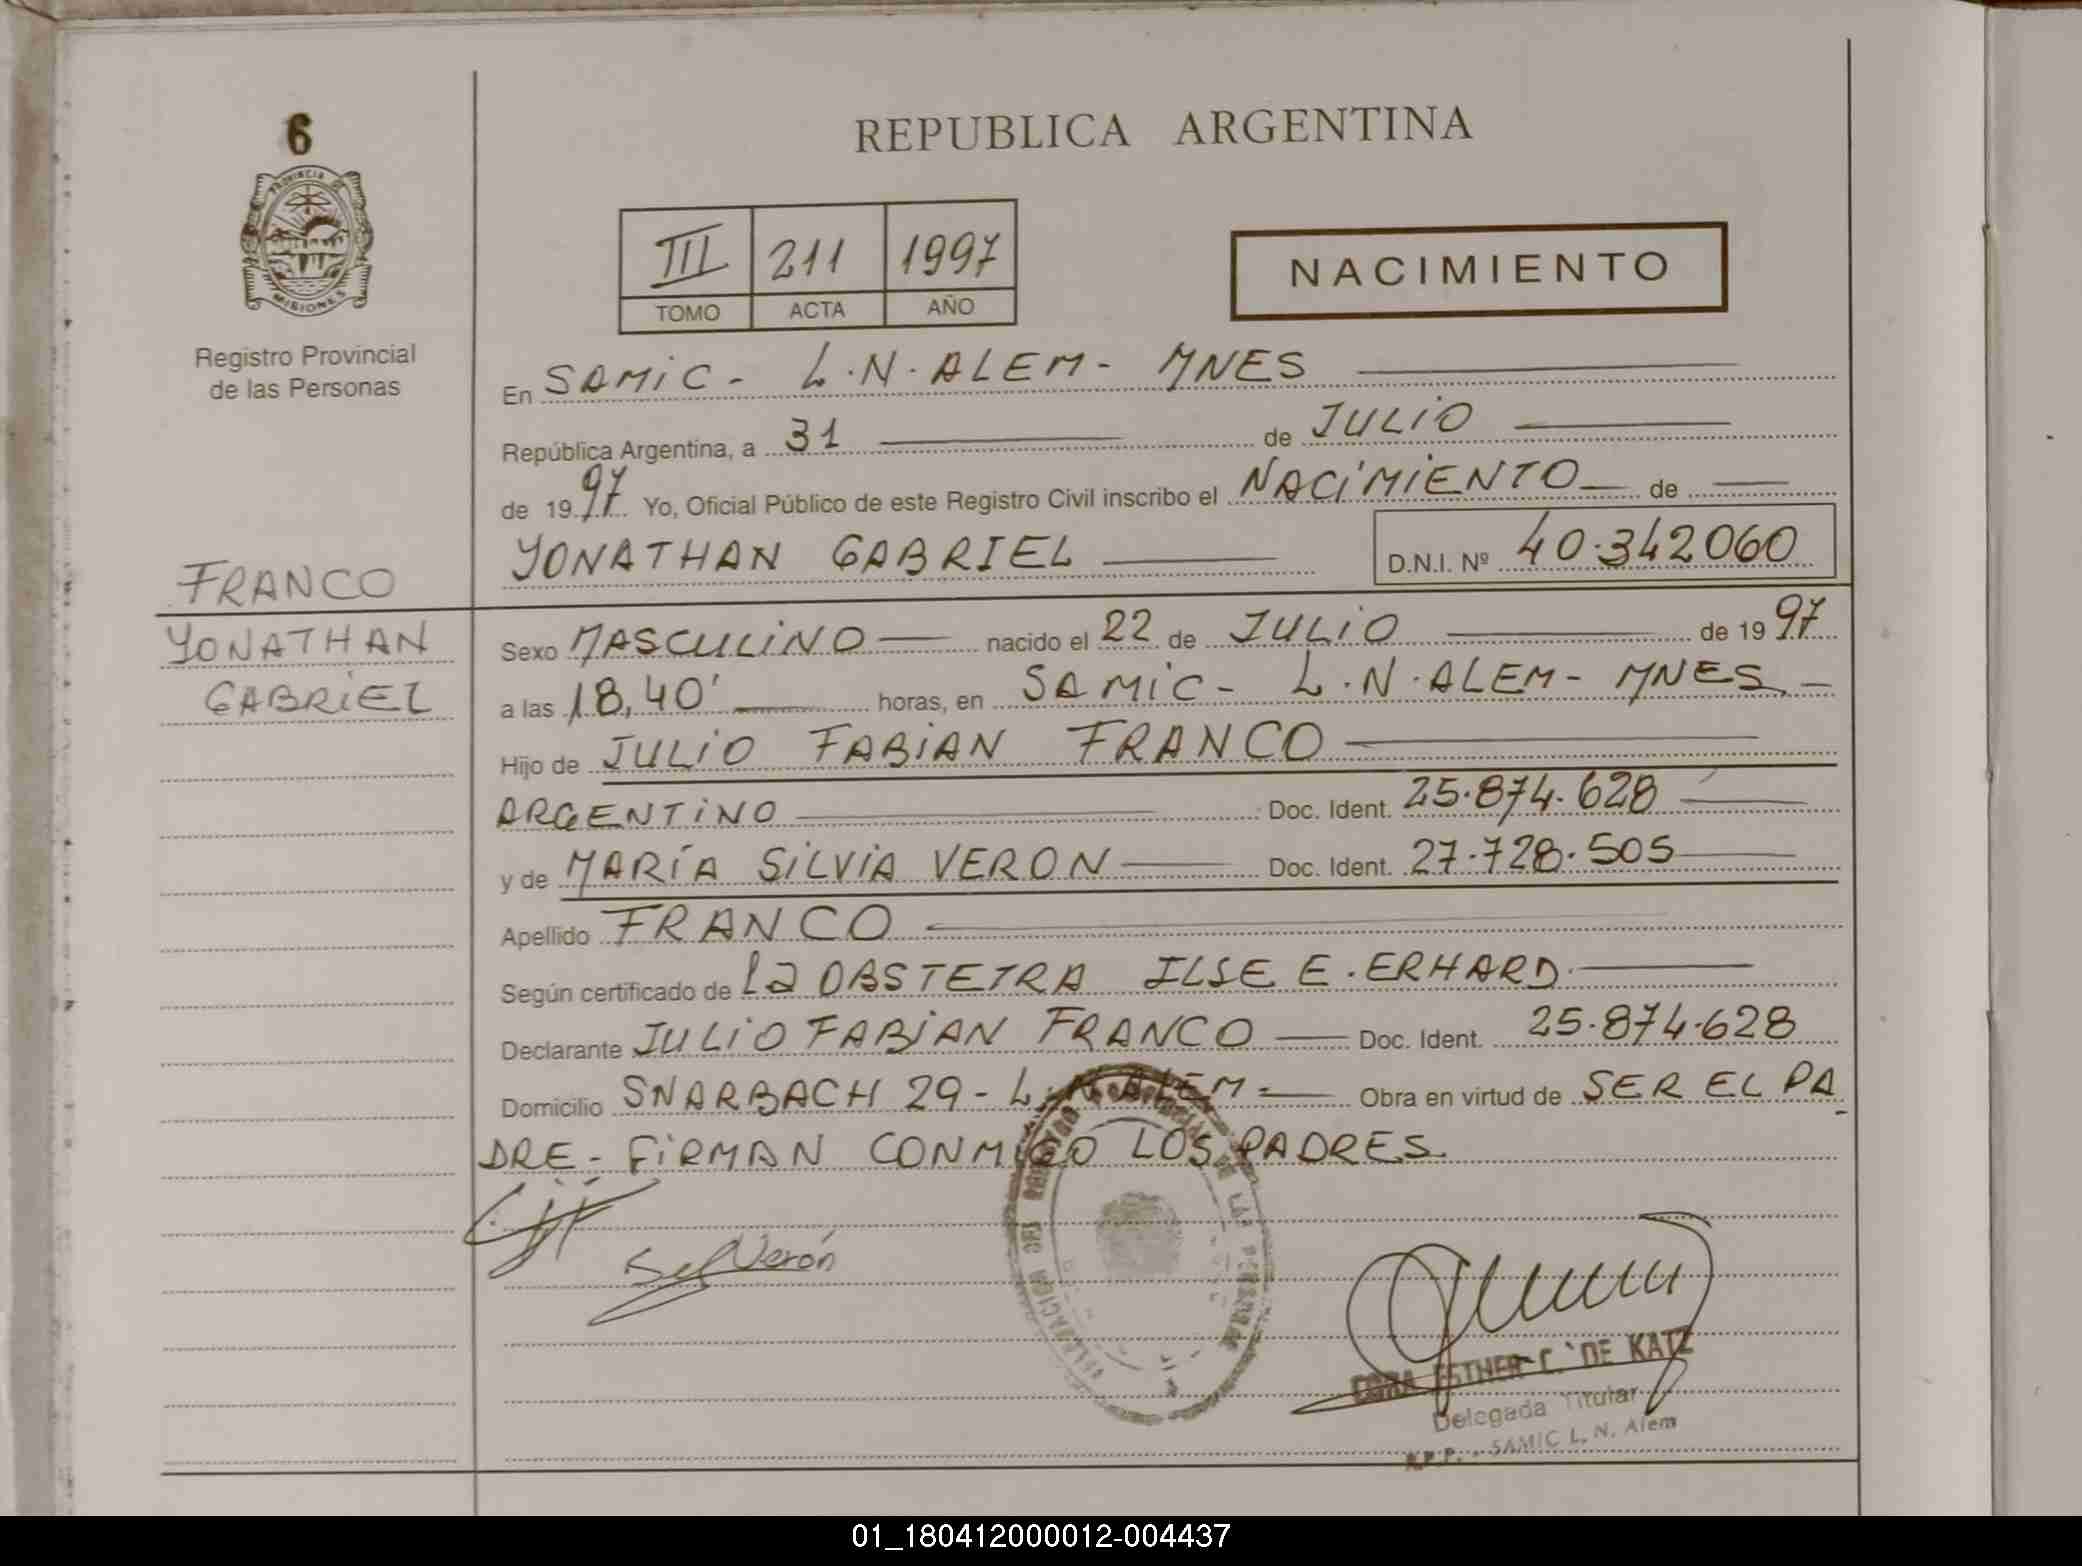 6
PROVINCIA DE
MISIONES
Registro Provincial
de las Personas
REPUBLICA ARGENTINA
III 211 1997
TOMO ACTA AÑO
NACIMIENTO
En SAMIC - L.N. ALEM - MNES
República Argentina, a 31 de JULIO
de 1997. Yo, Oficial Público de este Registro Civil inscribo el NACIMIENTO de
YONATHAN GABRIEL D.N.I. Nº 40.342060
FRANCO
YONATHAN
GABRIEL
Sexo MASCULINO nacido el 22 de JULIO de 1997
a las 18,40' horas, en SAMIC - L.N. ALEM - MNES.-
Hijo de JULIO FABIAN FRANCO
ARGENTINO Doc. Ident. 25.874.628
y de MARÍA SILVIA VERON Doc. Ident. 27.728.505
Apellido FRANCO
Según certificado de la OBSTETRA ILSE E. ERHARD.
Declarante JULIO FABIAN FRANCO Doc. Ident. 25.874.628
Domicilio SNARBACH 29 - L.N. ALEM Obra en virtud de SER EL PA
DRE - FIRMAN CONMIGO LOS PADRES.
Verón
DE LAS PERSONAS
ESTHER C. DE KATZ
Delegada Titular
R.P.P. - SAMIC L. N. Alem
01_180412000012-004437